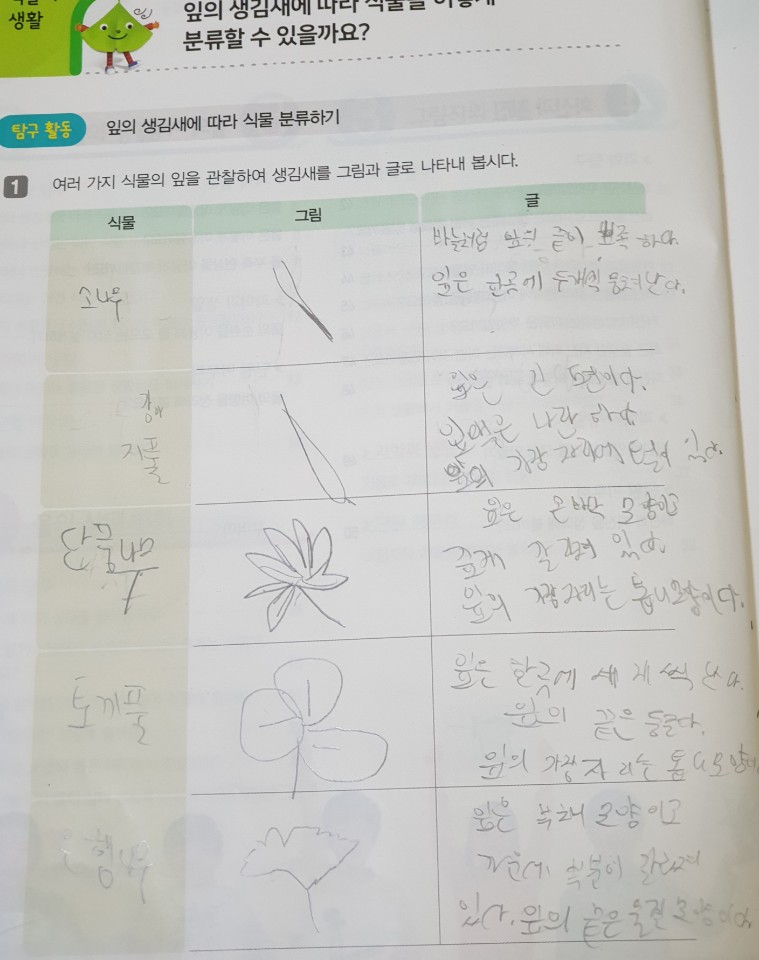 생활
잎의 생김새에 따라 식물을 어떻게
분류할 수 있을까요?
탐구 활동 잎의 생김새에 따라 식물 분류하기
1 여러 가지 식물의 잎을 관찰하여 생김새를 그림과 글로 나타내 봅시다.
식물 그림 글
소나무
바늘처럼 끝이 뾰족 하다.
잎은 한곳에 두개씩 뭉쳐난다.
강아
지풀
잎은 긴 이다.
나란 하다
잎의 가장 자리에 털이 있다.
단풍나무
잎은 손바닥 모양이고
갈라져 있다.
잎의 가장자리는 톱니모양이다.
토끼풀
잎은 한곳에 세 개 씩 난다.
잎의 끝은 둥글다.
잎의 가장 자리는 톱니모양이
은행나무
잎은 부채 모양이고
가운데 부분이 갈라져
있다. 잎의 끝은 물결 모양이다